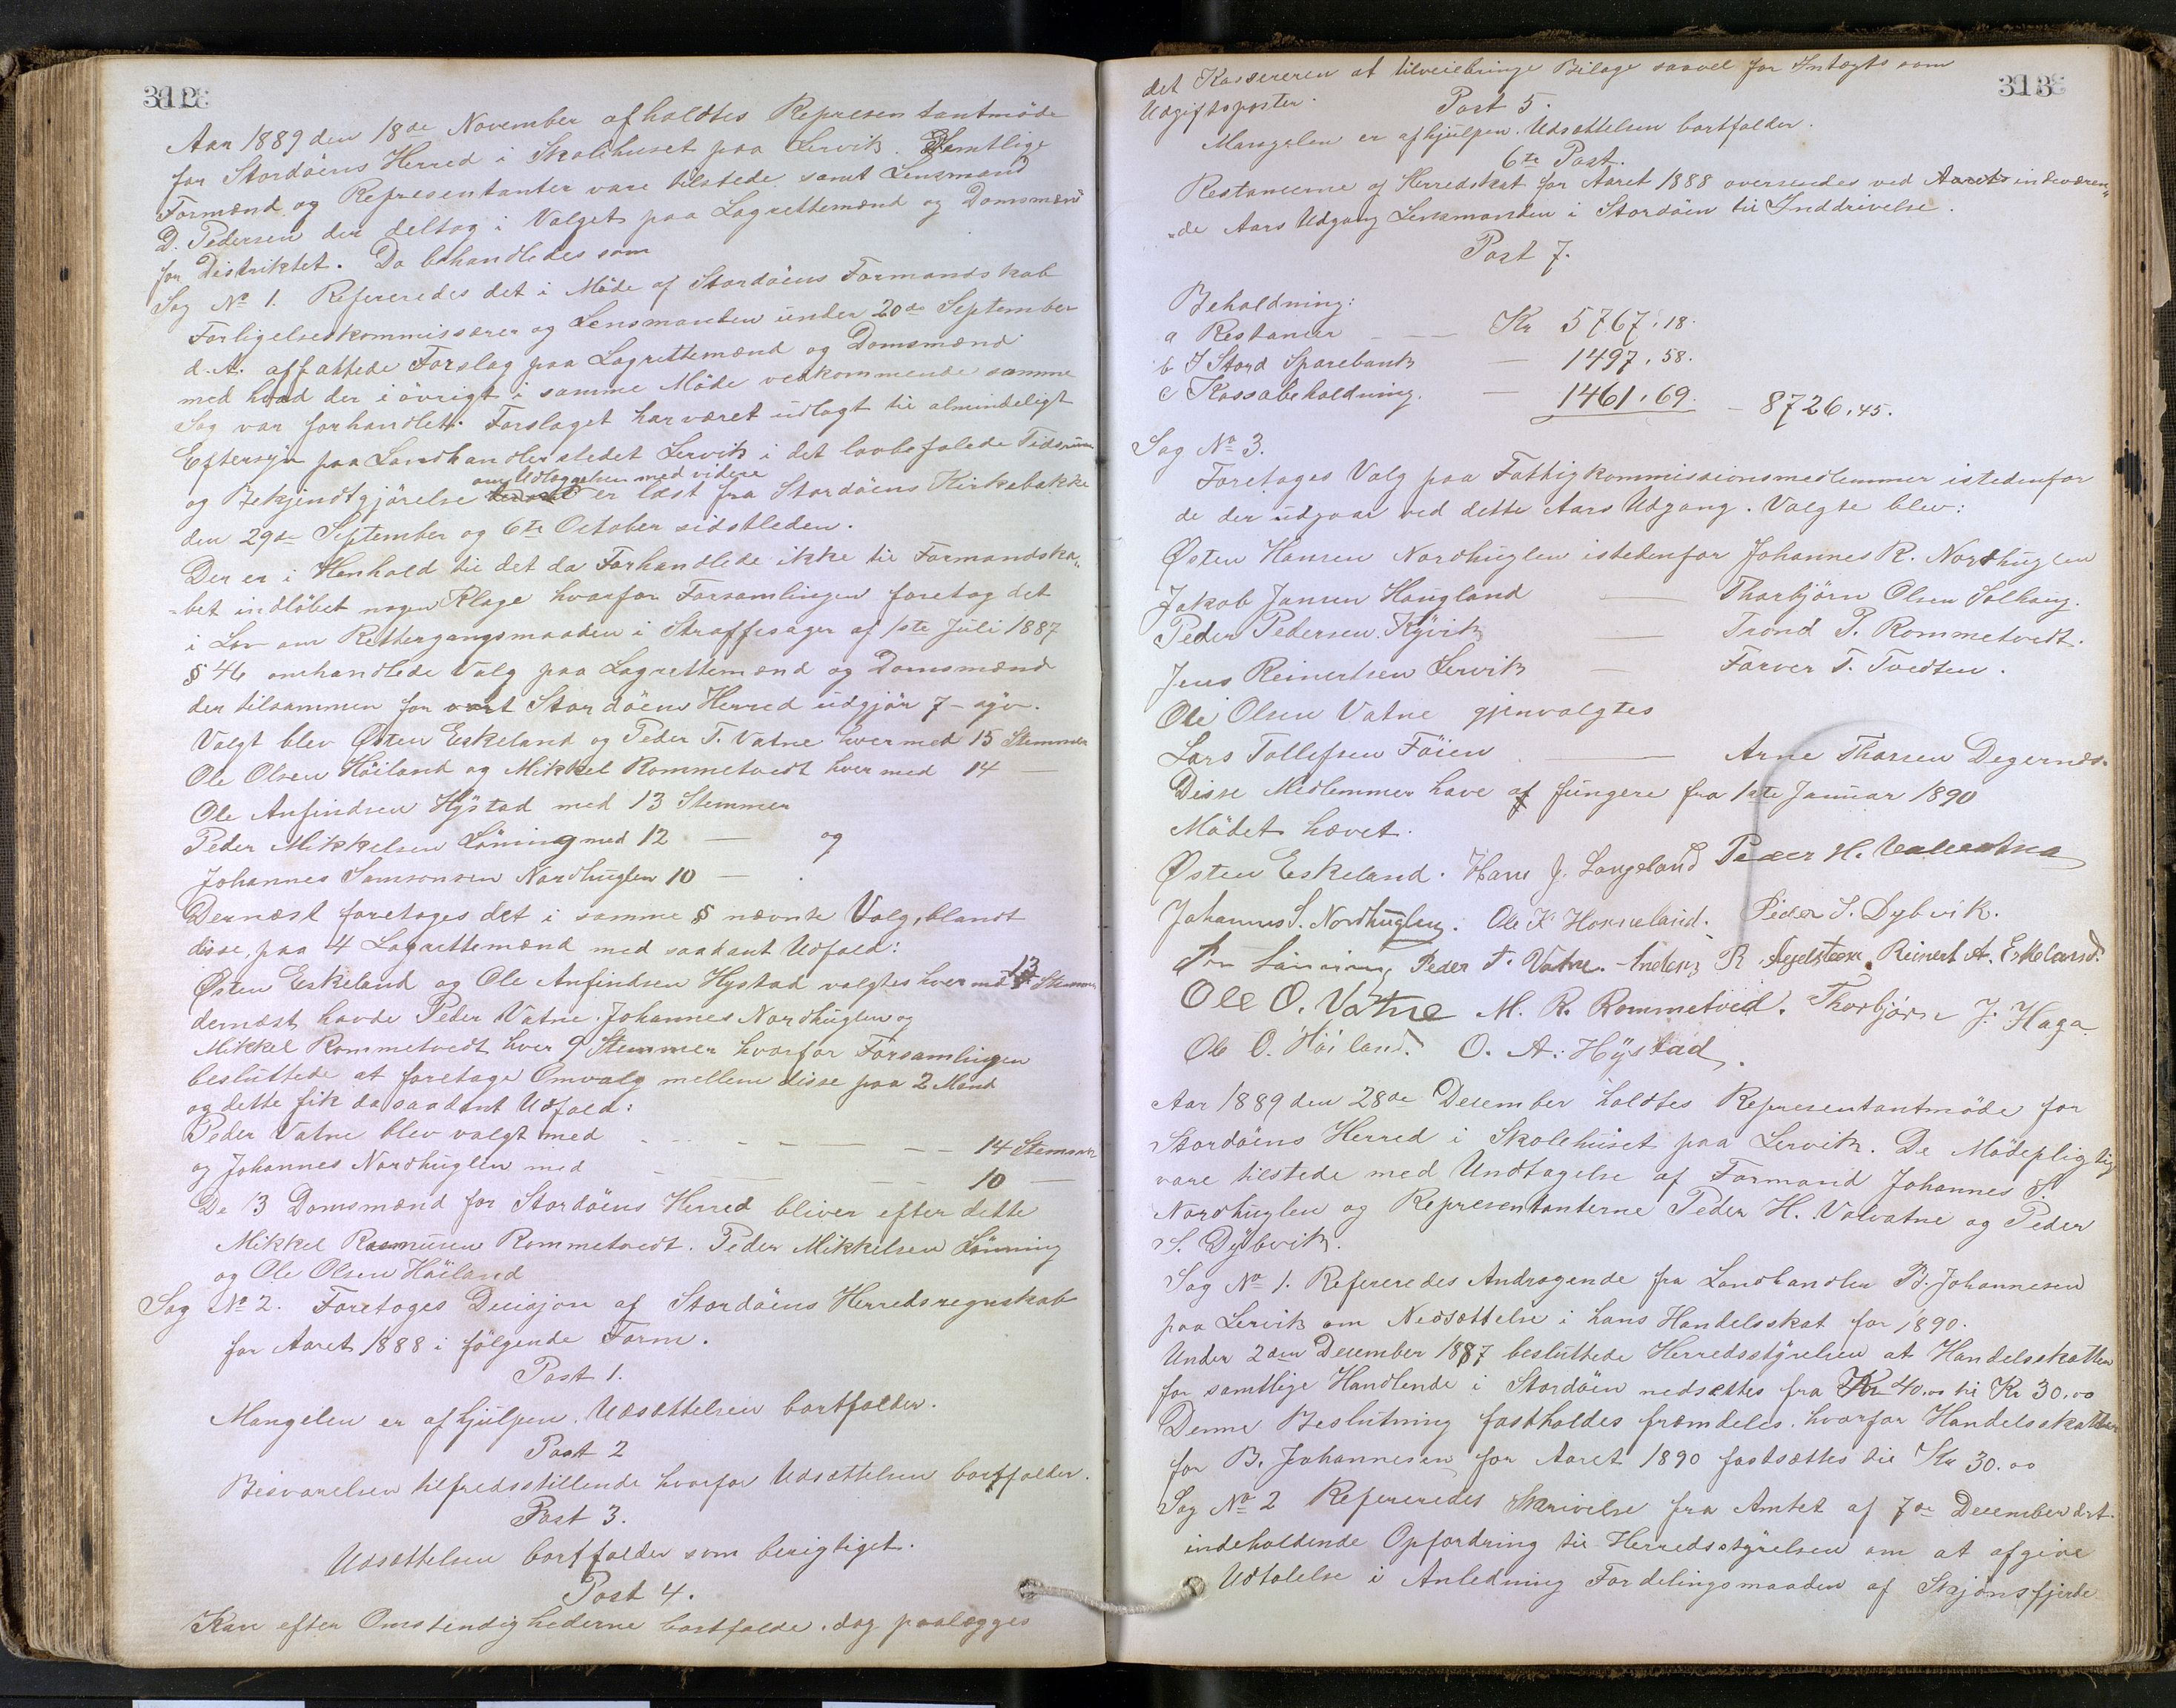 312
Aar 1889 den 18de November afholdtes Representantmöde
for Stordöens Herred i Skolehuset paa Lervik. Samtlige
Formænd og Representanter vare tilstede samt Lensmand
D. Pedersen der deltog i Valget paa Lagrettemænd og Domsmænd
for Distriktet. Da behandledes som
Sag No 1. Refereredes det i Möde af Stordöens Formandskab
Forligelseskommissærer og Lensmanden under 20de September
d. A. affattede Forslag paa Lagrettemænd og Domsmænd
med hvad der i övrigt i samme Möde vedkommende samme
Sag var forhandlet. Forslaget har været udlagt til almindeligt
Eftersyn paa Landhandlerstedet Lervik i det lovbefalede Tidsrum
om Udlæggelsen med videre
og Bekjendtgjörelse er læst fra Stordöens Kirkebakke
den 29de September og 6te October sidstleden.
Der er i Henhold til det da Forhandlede ikke til Formandska„
„bet indlöbet nogen Klage hvorfor Forsamlingen foretog det
i Lov om Rettergangsmaaden i Straffesager af 1ste Juli 1887
§ 46 omhandlede Valg paa Lagrettemænd og Domsmænd
der tilsammen for vort Stordöens Herred udgjör 7 - syv.
Valgt blev Østen Eskeland og Peder T. Vatne hver med 15 Stemmer
Ole Olsen Höiland og Mikkel Rommetvedt hver med 14 —
Ole Anfindsen Hÿstad med 13 Stemmer
Peder Mikkelsen Löning med 12 — og
Johannes Samsonsen Nordhuglen 10 — .
Dernæst foretoges det i samme § nævnte Valg, blandt
disse, paa 4 Lagrettemænd med saadant Udfald:
Østen Eskeland og Ole Anfindsen Hystad valgtes hver med 13 Stemmer
dernæst havde Peder Vatne. Johannes Nordhuglen og
Mikkel Rommetvedt hver 9 Stemmer hvorfor Forsamlingen
besluttede at foretage Omvalg mellem disse paa 2 Mænd
og dette fik da saadant Udfald:
Peder Vatne blev valgt med — — 14 Stemmer
og Johannes Nordhuglen med — — 10 —
De 3 Domsmænd for Stordöens Herred bliver efter dette
Mikkel Rasmusen Rommetvedt. Peder Mikkelsen Lönning
og Ole Olsen Höiland
Sag No 2. Foretoges Decisjon af Stordöens Herredsregnskab
for Aaret 1888 i fölgende Form.
Post 1.
Mangelen er afhjulpen. Udsættelsen bortfalder.
Post 2
Besvarelsen tilfredsstillende hvorfor Udsættelsen bortfalder.
Post 3.
Udsættelsen bortfalder som berigtiget.
Post 4.
Kan efter Omstendighederne bortfalde, dog paalægges
313
det Kassereren at tilveiebringe Bilage saavel for Indtægts som
Udgiftsposter.
Post 5.
Mangelen er afhjulpen. Udsættelsen bortfalder.
6te Post.
Restancerne af Herredskat for Aaret 1888 oversendes ved Aarets indeværen„
„de Aars Udgang Lensmanden i Stordöen til Inddrivelse.
Post 7.
Beholdning:
a Restancer — Kr 5767,18.
b I Stord Sparebank — 1497,58.
c Kassabeholdning. — 1461,69. — 8726,45.
Sag No 3.
Foretoges Valg paa Fattigkommissionsmedlemmer istedenfor
de der udgaar ved dette Aars Udgang. Valgte blev:
Østen Hansen Nordhuglen istedenfor Johannes R. Nordhuglen
Jakob Jansen Haugland — Thorbjörn Olsen Solhaug.
Peder Pedersen Kÿvik — Trond P. Rommetvedt.
Jens Reinertsen Lervik — Farver T. Tvedten.
Ole Olsen Vatne gjenvalgtes
Lars Tollefsen Föien — Arne Thorsen Degernes.
Disse Medlemmer have at fungere fra 1ste Januar 1890
Mödet hævet.
Østen Eskeland. Hans J. Langeland Peder H. Valvatna
Johannes S. Nordhuglen. Ole K Horneland. Peder S. Dybvik.
Lönning Peder T. Vatne. Anders R. Reinert A. Eskeland.
Ole O. Vatne M. R. Rommetved. Thorbjörn J. Haga
Ole O. Höiland. O. A. Hÿstad.
Aar 1889 den 28de December holdtes Representantmöde for
Stordöens Herred i Skolehuset paa Lervik. De Mödepligtige
vare tilstede med Undtagelse af Formand Johannes S.
Nordhuglen og Representanterne Peder H. Valvatne og Peder
S. Dÿbvik.
Sag No 1. Refereredes Andragende fra Landhandler B. Johannesen
paa Lervik om Nedsættelse i hans Handelsskat for 1890.
Under 2den December 1887 besluttede Herredsstÿrelsen at Handelsskatten
for samtlige Handlende i Stordöen nedsættes fra Kr 40.00 til Kr 30.00
Denne Beslutning fastholdes fremdeles. hvorfor Handelsskatten
for B. Johannesen for Aaret 1890 fastsættes til Kr 30.00
Sag No 2 Refereredes Skrivelse fra Amtet af 7de December d.A.
indeholdende Opfordring til Herredsstÿrelsen om at afgive
Udtalelse i Anledning Fordelingsmaaden af Skjönsfjerde